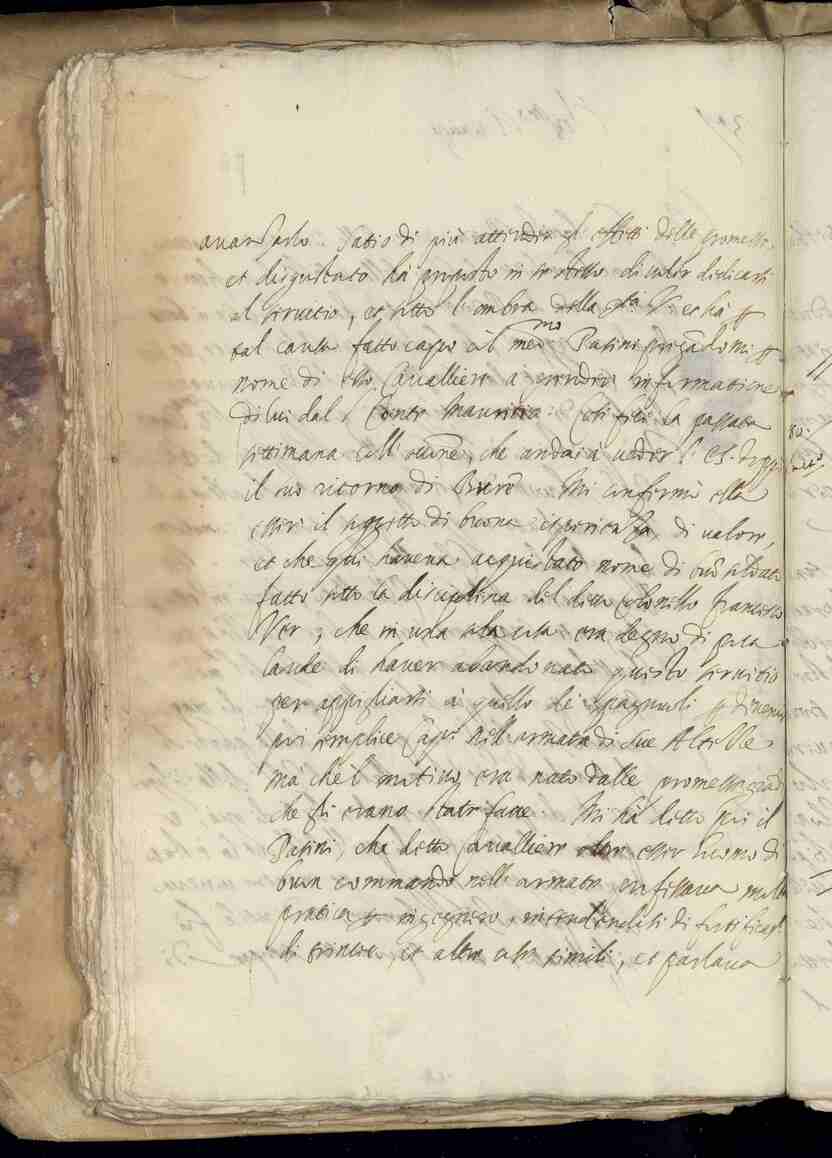 avanzarlo. Satio di più attender gl' effetti delle promesse,
et disgustato hà pensato in se stesso di voler dedicarsi
al servitio, et sotto l'ombra della Stà Vª et hà p
tal causa fatto capo col medmo Pasini pregandomi p
nome di esso Cavalliero a prender informatione
di lui dal Conte Mauritio. Così feci la passata
settimana coll' occone, che andai a veder l'
il suo ritorno di Mi confirmò ella
esser il soggetto di buona esperienza, di valore,
et che qui haveva acquistato nome di buon soldato
fatto sotto la disciplina del detto Colonello Francesco
Ver, che in una sola cosa era degno di poca
laude di haver abandonato questo servitio
per appigliarsi à quello de' Spagnuoli p
poi semplice Capº nell' armata di Sue Altezze
mà che'l motivo era nato dalle promesse
che gli erano state fatte. Mi hà detto poi il
Pasini, che detto Cavalliero oltre esser huomo di
buon commando nell' armata professava molta
pratica p ingegnero, intendendosi di
di trincere, et altre cose simili, et parlava